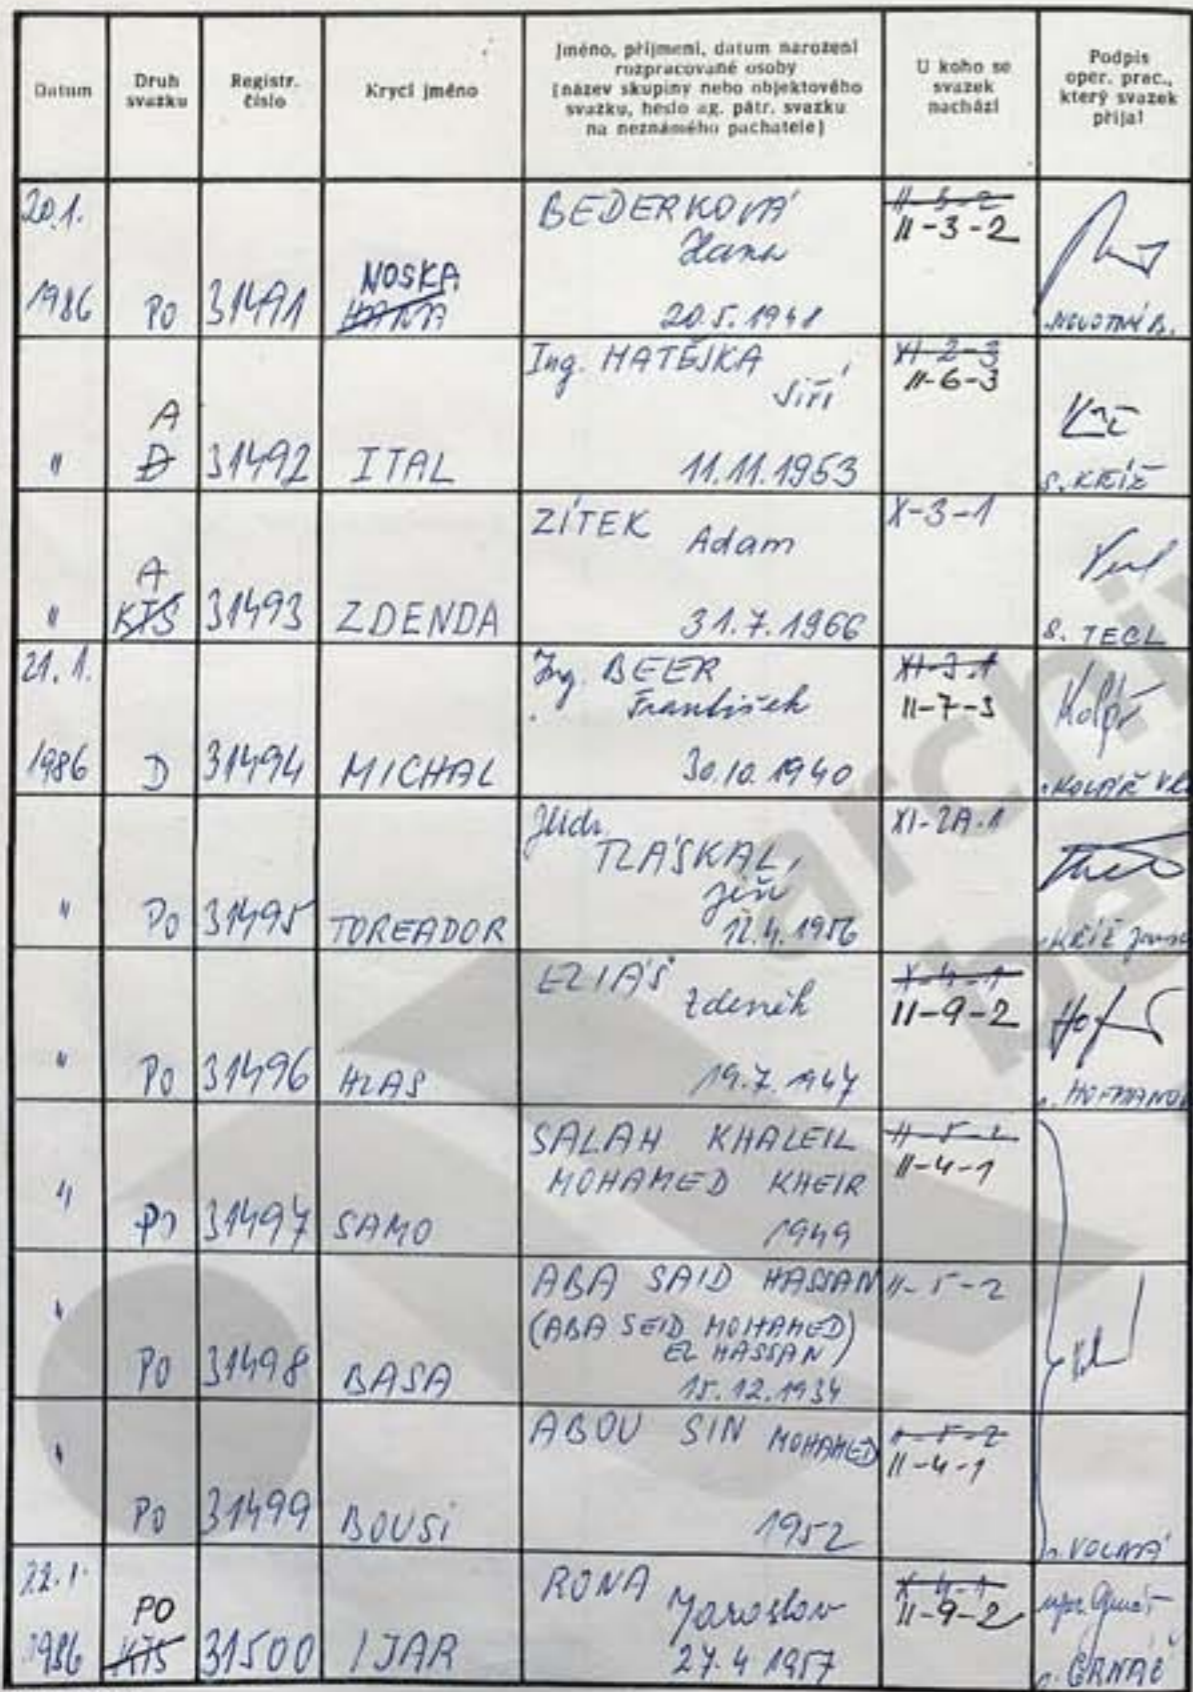 Datum
Druh
svazku
Registr.
číslo
Krycí jméno
Jméno, příjmení, datum narození
rozpracované osoby
(název skupiny nebo objektového
svazku, heslo ag. pátr. svazku
na neznámého pachatele)
U koho se
svazek
nachází
Podpis
oper. prac.,
který svazek
přijal
20.1.
1986
PO
31491
NOSKA
HANA
BEDERKOVÁ
Hana
20.5.1948
II-5-2
II-3-2
NOVOTNÝ B.
"
A
D
31492
ITAL
Ing. MATĚJKA
Jiří
11.11.1953
XI-2-3
II-6-3
s. KŘÍŽ
"
A
KTS
31493
ZDENDA
ZÍTEK Adam
31.7.1966
X-3-1
s. TECL
21.1.
1986
D
31494
MICHAL
Ing. BEER
František
30.10.1940
XI-3-1
II-7-3
KOLÁŘ
"
PO
31495
TOREADOR
JUDr.
TLÁSKAL,
Jiří
12.4.1956
XI-2A-1
KŘÍŽ
"
PO
31496
HLAS
ELIÁŠ Zdeněk
19.7.1947
X-4-1
II-9-2
"
PO
31497
SAMO
SALAH KHALEIL
MOHAMED KHEIR
1949
II-5-2
II-4-1
"
PO
31498
BASA
ABA SAID HASSAN
(ABA SEID MOHAMED)
EL HASSAN)
15.12.1934
II-5-2
"
PO
31499
BOUSI
ABOU SIN MOHAMED
1952
II-5-2
II-4-1
s. VOLNÁ
22.1.
1986
PO
KTS
31500
IJAR
RONA Jaroslav
27.4 1957
X-4-1
II-9-2
archiv